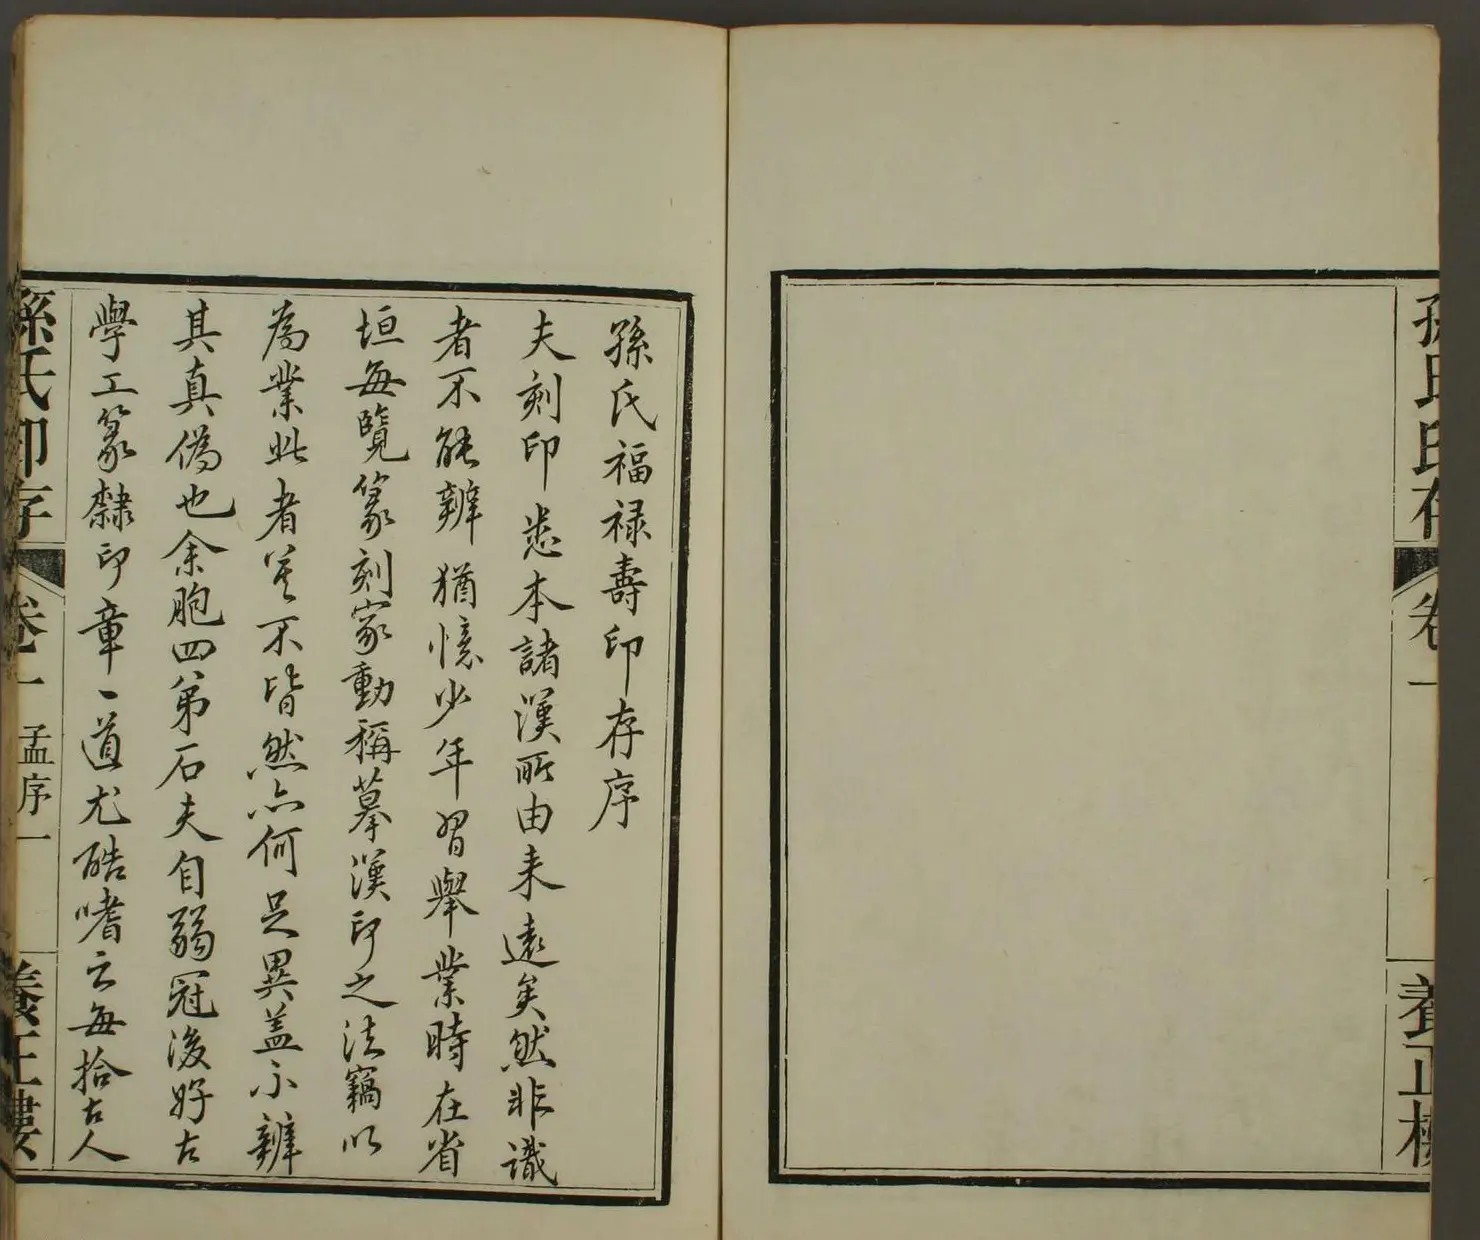 孫氏印存
卷一
養正樓
孫氏福禄壽印存序
夫刻印悉本諸漢所由来遠矣然非識
者不能辨猶憶少年習舉業時在省
垣每覽篆刻家動稱摹漢印之法竊以
為業此者莫不皆然亦何足異盖不辨
其真偽也余胞四弟石夫自弱冠後好古
學工篆隸印章一道尤酷嗜之每拾古人
孫氏印存
卷一
孟序一
養正樓